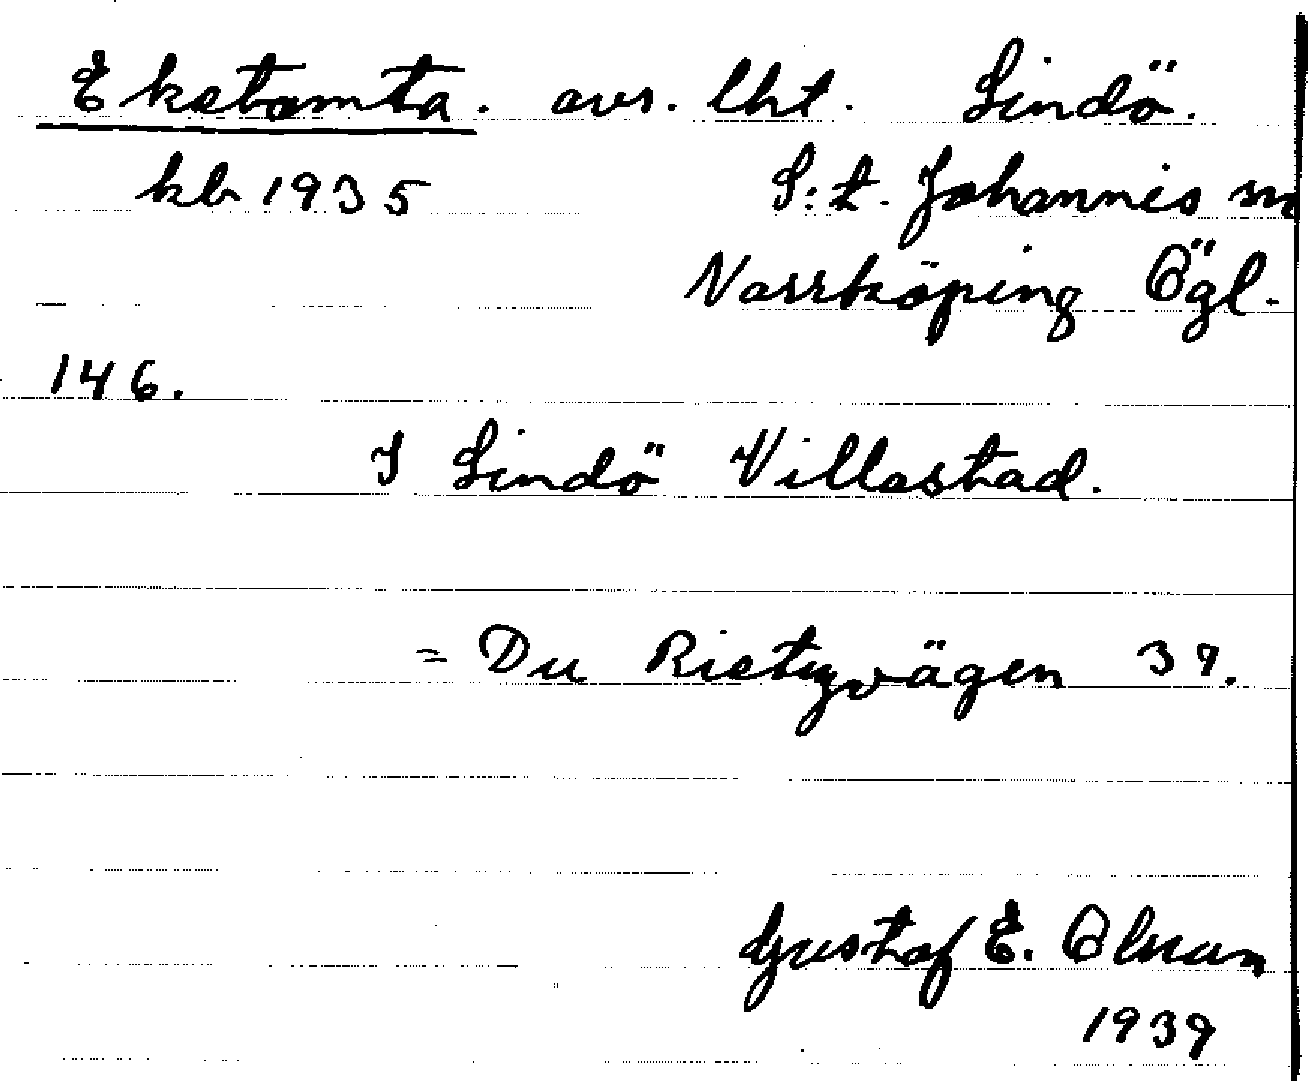 Ekstamta. avs. lht. Lindö.
kb 1935 S:t. Johannis
Norrköping Ögl.
146.
I Lindö Villastad.
= Du 39.
Gustaf E. Olsson
1939